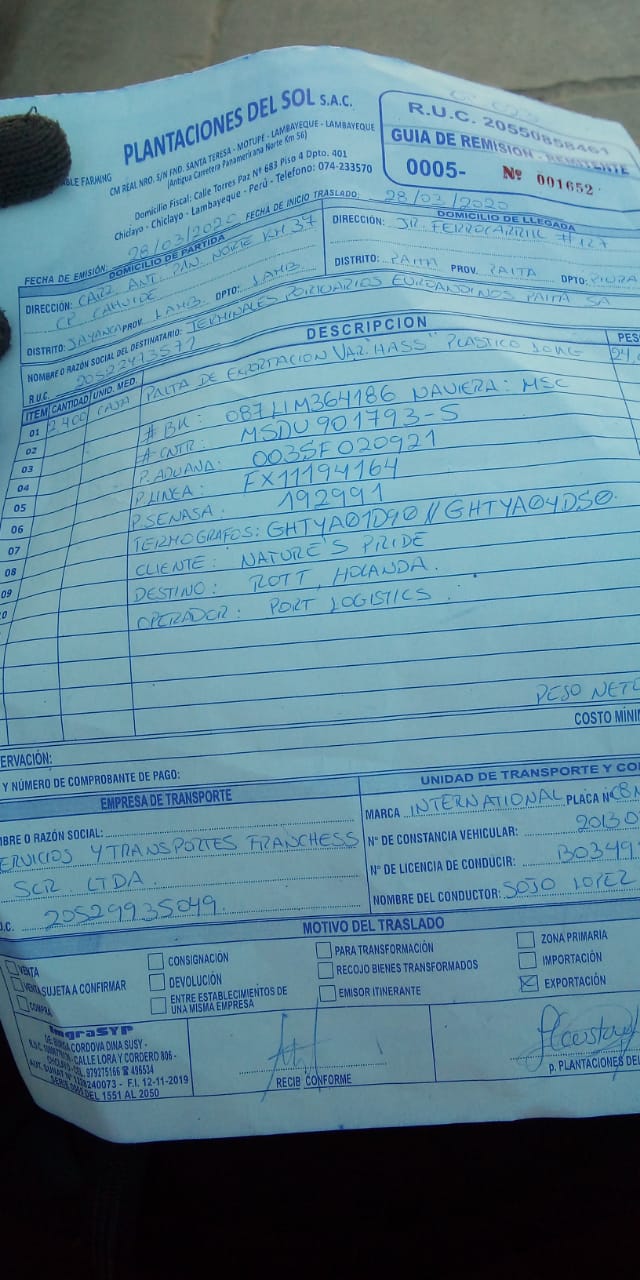 PLANTACIONES DEL SOL S.A.C.
BLE FARMING
CM REAL NRO. S/N FND. SANTA TERESA - MOTUPE - LAMBAYEQUE - LAMBAYEQUE
(Antigua Carretera Panamericana Norte Km 56)
Domicilio Fiscal: Calle Torres Paz Nº 683 Piso 4 Dpto. 401
Chiclayo - Chiclayo - Lambayeque - Perú - Telefono: 074-233570
R.U.C. 20550858461
GUIA DE REMISION - REMITENTE
0005- Nº 001652
FECHA DE EMISIÓN: 28/03/2020 FECHA DE INICIO TRASLADO: 28/03/2020
DOMICILIO DE PARTIDA
DIRECCIÓN: CARR. ANT. PAN. NORTE KM 37
CP CAHUIDE
DISTRITO: JAYANCA PROV. LAMB. DPTO: LAMB
DOMICILIO DE LLEGADA
DIRECCIÓN: JR. FERROCARRIL #127
DISTRITO: PAITA PROV. PAITA DPTO: PIURA
NOMBRE O RAZÓN SOCIAL DEL DESTINATARIO: TERMINALES PORTUARIOS EUROANDINOS PAITA SA
R.U.C. 20522473571
ITEM CANTIDAD UNID. MED. DESCRIPCION PES
01 2,400 CAJA PALTA DE EXPORTACION VAR. "HASS" PLASTICO 10KG 24,0
02 # BK: 087LIM364186 NAVIERA: MSC
03 # CNTR: MSDU 901793-5
04 P. ADUANA: 003SF020921
05 P. LINEA: FX11194164
06 P. SENASA: 192991
07 TERMOGRAFOS: GHTYA01D90 // GHTYA04DS0.
08 CLIENTE: NATURE'S PRIDE
09 DESTINO: ROTT, HOLANDA.
0 OPERADOR: PORT LOGISTICS
PESO NETO
COSTO MÍNI
ERVACIÓN:
Y NÚMERO DE COMPROBANTE DE PAGO:
EMPRESA DE TRANSPORTE
MBRE O RAZÓN SOCIAL:
ERVICIOS Y TRANSPORTES FRANCHESS
SCR LTDA.
U.C. 20529935049
UNIDAD DE TRANSPORTE Y CO
MARCA INTERNATIONAL PLACA Nº C8N
Nº DE CONSTANCIA VEHICULAR: 20130
Nº DE LICENCIA DE CONDUCIR: B0349
NOMBRE DEL CONDUCTOR: SOJO LOPEZ
MOTIVO DEL TRASLADO
VENTA
VENTA SUJETA A CONFIRMAR
COMPRA
CONSIGNACIÓN
DEVOLUCIÓN
ENTRE ESTABLECIMIENTOS DE
UNA MISMA EMPRESA
PARA TRANSFORMACIÓN
RECOJO BIENES TRANSFORMADOS
EMISOR ITINERANTE
ZONA PRIMARIA
IMPORTACIÓN
EXPORTACIÓN
ImgraSYP
CORDOVA DINA SUSY -
CALLE LORA Y CORDERO 806 -
979275166 ☎ 496534
240073 - F.I. 12-11-2019
DEL 1551 AL 2050
RECIBÍ CONFORME
p. PLANTACIONES DEL